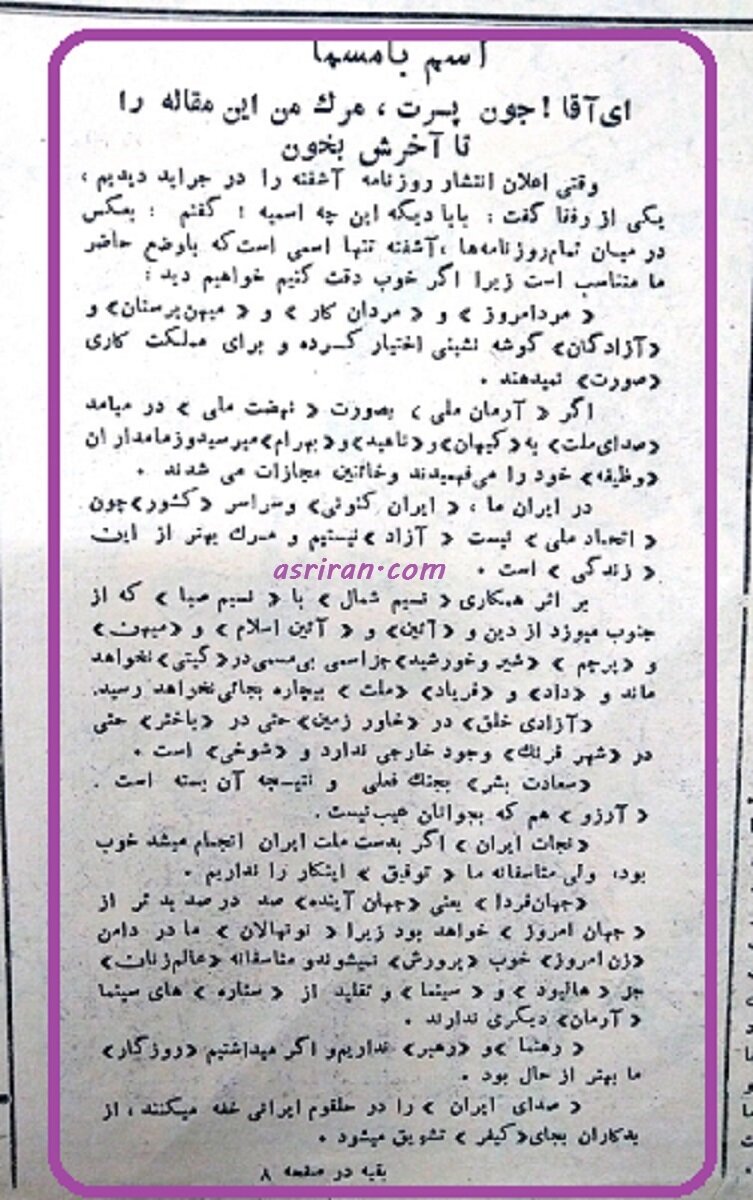 اسم بامسما
ای‌آقا! جون پسرت، مرك من این مقاله را
تا آخرش بخون
وقتی اعلان انتشار روزنامه آشفته را در جراید دیدیم،
یکی از رفقا گفت: بابا دیگه این چه اسمیه؛ گفتم: بعکس
در میان تمام‌روزنامه‌ها،آشفته تنها اسمی است‌که باوضع حاضر
ما متناسب است زیرا اگر خوب دقت کنیم خواهیم دید:
« مردامروز » و « مردان کار » و « میهن‌پرستان» و
«آزادگان» گوشه نشینی اختیار کرده و برای مملکت کاری
«صورت» نمیدهند.
اگر « آرمان ملی » بصورت « نهضت ملی » در میامد
«صدای‌ملت» به«کیهان»و«ناهید»و«بهرام»میرسیدوزمامداران
«وظیفه» خود را می‌فهمیدند وخائنین مجازات می شدند.
در ایران ما، « ایران کنونی» وسراسر «کشور»چون
« اتحاد ملی » نیست « آزاد »نیستیم و مرك بهتر از این
« زندگی » است.
asriran.com
بر اثر همکاری « نسیم شمال » با « نسیم صبا » که از
جنوب میوزد از دین و «آئین» و « آئین اسلام » و «میهن»
و «پرچم » «شیر وخورشید»جزاسمی بی‌مسمی‌در«گیتی»نخواهد
ماند و «داد» و «فریاد» «ملت » بیچاره بجائی‌نخواهد رسید.
«آزادی خلق» در «خاور زمین»حتی در «باختر» حتی
در «شهر فرنك» وجود خارجی ندارد و «شوخی» است.
«سعادت بشر» بجنك فعلی و نتیجه آن بسته است.
« آرزو » هم که بجوانان عیب‌نیست.
«نجات ایران » اگر بدست ملت ایران انجام میشد خوب
بود، ولی متاسفانه ما « توفیق » اینکار را نداریم.
«جهان‌فردا» یعنی «جهان آینده» صد درصد بد تر از
« جهان امروز » خواهد بود زیرا « نونهالان » ما در دامن
«زن امروز» خوب «پرورش» نمیشوندو متاسفانه «عالم‌زنان»
جز «هالیود » و «سینما» و تقلید از « ستاره » های سینما
« آرمان» دیگری ندارند.
« رهنما »و «رهبر» نداریم‌و اگر میداشتیم «روزگار»
ما بهتر از حال بود.
« صدای ایران » را در حلقوم ایرانی خفه میکنند، از
بدکاران بجای«کیفر » تشویق میشود.
بقیه در صفحه ۸